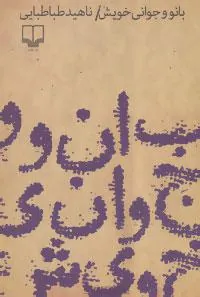 بانو و جوانی خویش/ ناهید طباطبایی
بانو و
جوانی
خویش